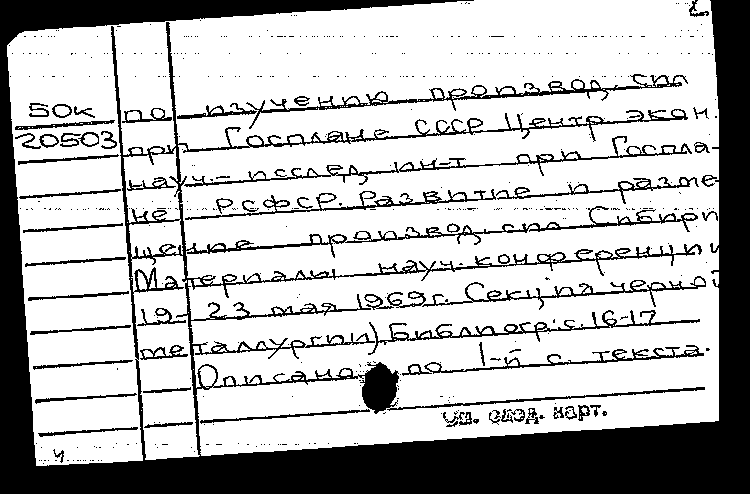 2.
50к по изучению производ. сил
20503 при Госплане СССР Центр. экон.
науч.-исслед. ин-т при Госпла-
не РСФСР. Развитие и разме-
щение производ. сил Сибири
Материалы науч. конференции
19-23 мая 1969г. Секция черной
металлургии). Библиогр: с. 16-17
Описана по 1-й с. текста.
см. след. карт.